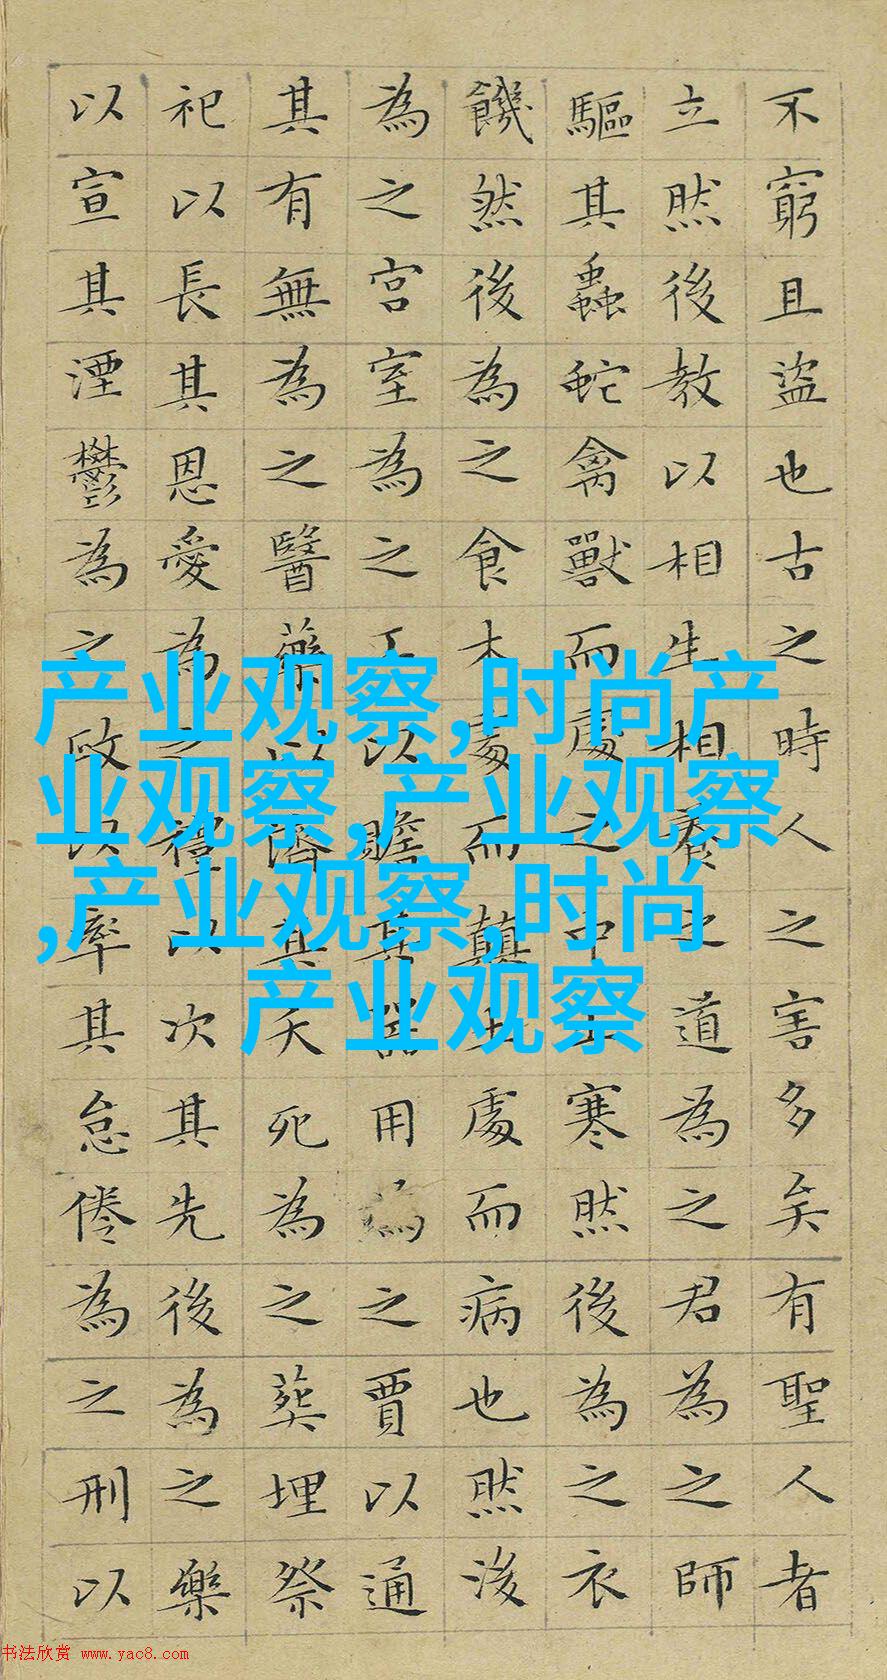 不窮且盜也古之時人之害多矣有聖人者
立然後教以相生相養之道為之君為之師
驅其蟲蛇禽獸而處之中土寒然後為之衣
饑然後為之食木處而顛土處而病也然後
為之宮室為之工以贍其器用為之賈以通
其有無為之醫藥以濟其夭死為之葬埋祭
祀以長其恩愛為之禮以次其先後為之樂
以宣其湮鬱為之政以率其怠倦為之刑以
产业观察,时尚产
业观察,产业观察
,产业观察,时尚
产业观察
书法欣赏 www.yac8.com